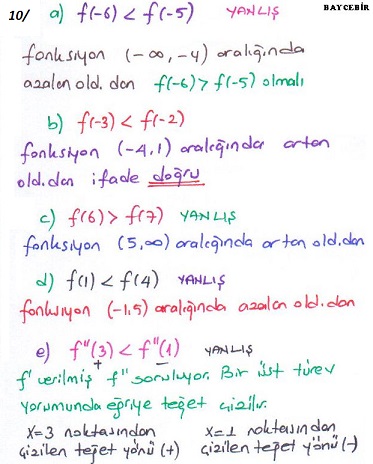 10/ a) f(-6) < f(-5) YANLIŞ BAYCEBİR
fonksiyon (-∞, -4) aralığında
azalan old. dan f(-6) > f(-5) olmalı
b) f(-3) < f(-2)
fonksiyon (-4,1) aralığında artan
old.dan ifade doğru
c) f(6) > f(7) YANLIŞ
fonksiyon (5,∞) aralığında artan old.dan
d) f(1) < f(4) YANLIŞ
fonksiyon (-1,5) aralığında azalan old.dan
e) f"(3) < f"(1) YANLIŞ
+ -
f' verilmiş f" soruluyor. Bir üst türev
yorumunda eğriye teğet çizilir.
x=3 noktasından x=1 noktasından
çizilen teğet yönü (+) çizilen teğet yönü (-)